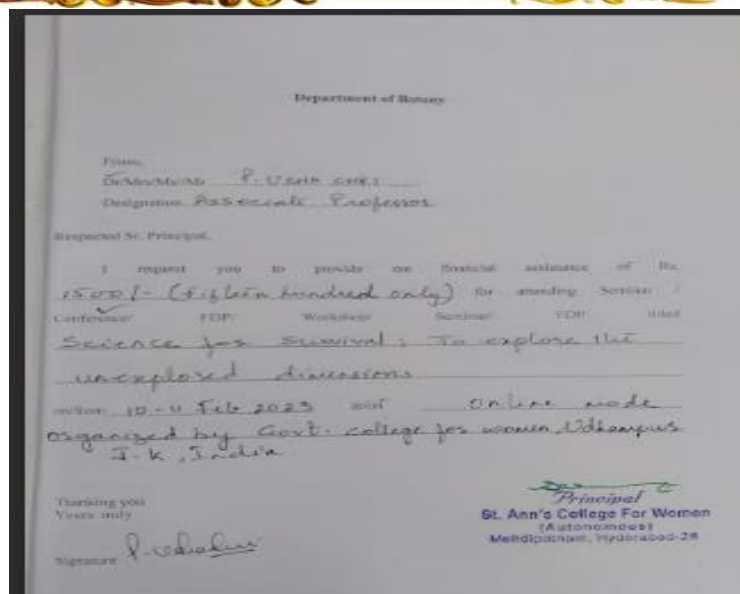 Department of Botany
From,
Dr/Mrs/Ms/Mr P. USHA SHRI
Designation Associate Professor
Respected Sr. Principal,
I request you to provide me financial assistance of Rs.
1500/- (fifteen hundred only) for attending Seminar /
Conference/ FDP/ Workshop/ Seminar/ FDP/ titled
Science for Survival: To explore the
unexplored dimensions
on 10-11 Feb 2023 Online mode
organized by Govt. college for women, Udhampur
J-K, India
Thanking you
Yours truly
Signature
Principal
St. Ann's College For Women
(Autonomous)
Mehdipatnam, Hyderabad-28